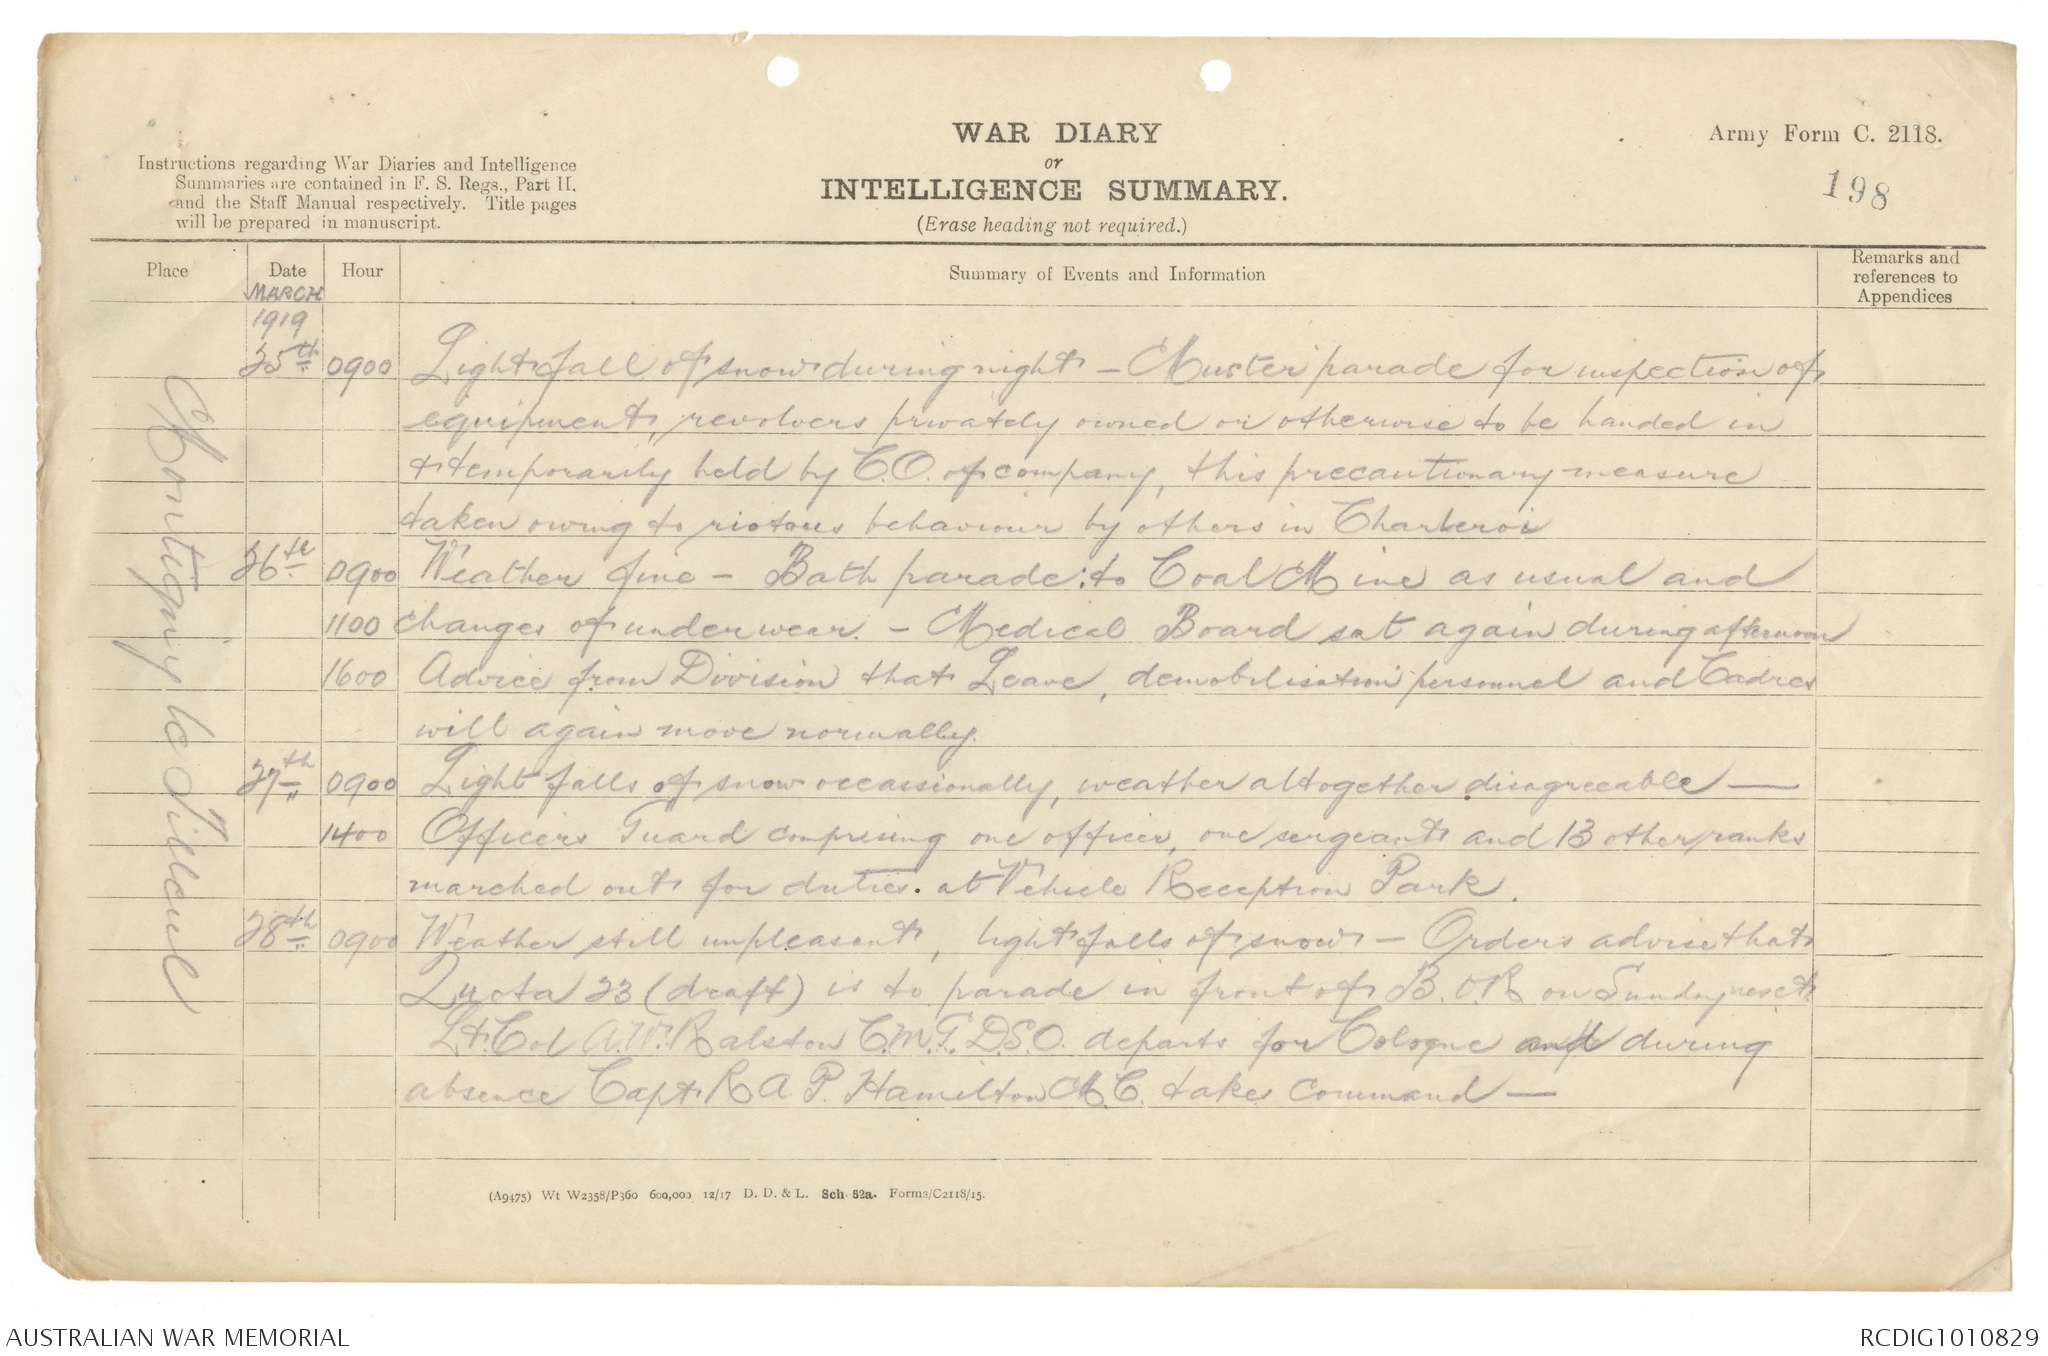 WAR DIARY
or
INTELLIGENCE SUMMARY.
(Erase heading not required.)
Army Form C. 2118.
198
Instructions regarding War Diaries and Intelligence
Summaries are contained in F. S. Regs., Part II.
and the Staff Manual respectively. Title pages
will be prepared in manuscript.
Place Date Hour Summary of Events and Information Remarks and
references to
Appendices
MARCH
1919
Montigny le Tilleul
25th 0900 Light fall of snow during night - Muster parade for inspection of
equipment, revolvers privately owned or otherwise to be handed in
& temporarily held by C.O. of company, this precautionary measure
taken owing to riotous behaviour by others in Charleroi
26th 0900 Weather fine - Bath parade: to Coal Mine as usual and
1100 changes of underwear. - Medical Board sat again during afternoon
1600 Advice from Division that Leave, demobilisation personnel and Cadres
will again move normally.
27th 0900 Light falls of snow occassionally, weather altogether disagreeable —
1400 Officers Guard comprising one officer, one sergeant and 13 other ranks
marched out for duties. at Vehicle Reception Park.
28th 0900 Weather still unpleasant, light falls of snow - Orders advise that
Quota 23 (draft) is to parade in front of B.O.R on Sunday next
Lt. Col A.W. Ralston C.M.G. D.S.O. departs for Cologne and during
absence Capt R A P. Hamilton M.C. takes command —
(A9475) Wt W2358/P360 600,000 12/17 D. D. & L. Sch 52a. Forms/C2118/15.
AUSTRALIAN WAR MEMORIAL
RCDIG1010829